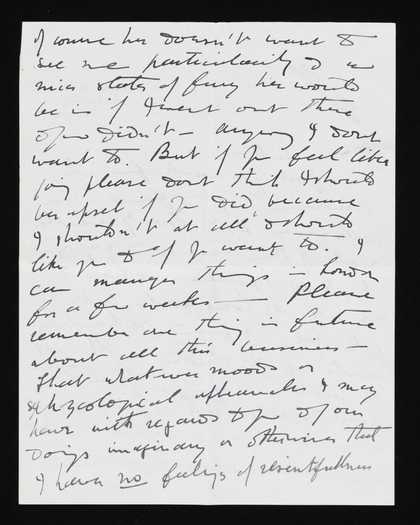 of course he doesn't want to
see me particularily & a
nice state of fury he would
be in if I went out there
& you didn't — anyway I dont
want to. But if you feel like
going please dont think I should
be upset if you did because
I shouldn't at all, I should
like you to if you want to. I
can manage things in London
for a few weeks — Please
remember one thing in future
about all this business —
that whatever moods or
psychological I may
have with regards to you & your
doings imaginary or otherwise that
I have no feelings of resentfullness